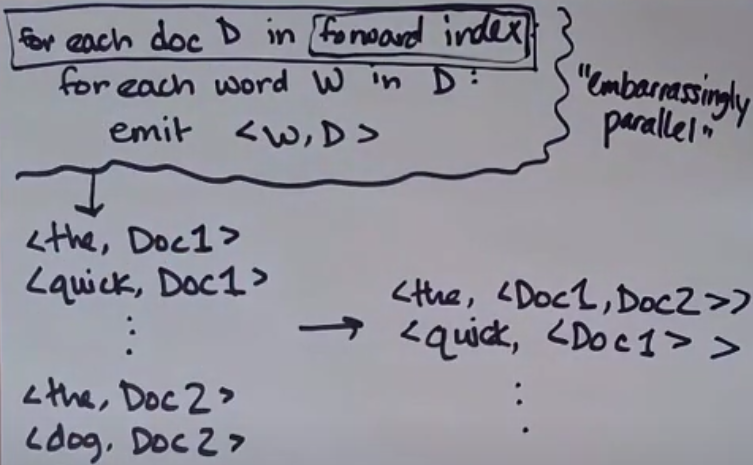 for each doc D in forward index
for each word W in D:
emit <W, D>
"embarrassingly
parallel"
<the, Doc1>
<quick, Doc1>
⋮
<the, Doc2>
<dog, Doc2>
<the, <Doc1, Doc2>>
<quick, <Doc1> >
⋮